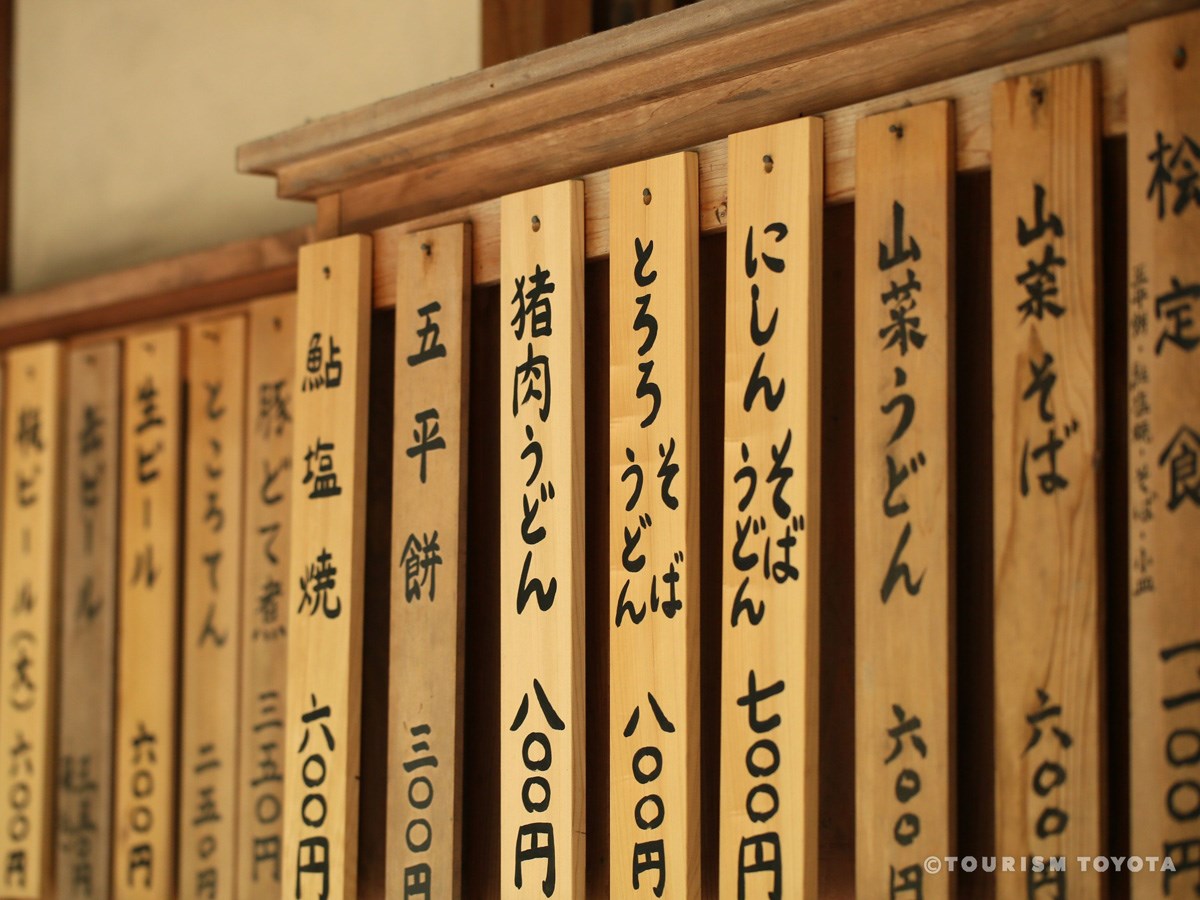 桧定食
一二〇〇
山菜そば
六〇〇円
山菜うどん
六〇〇円
にしん
そば
うどん
七〇〇円
とろろ
そば
うどん
八〇〇円
猪肉うどん
八〇〇円
五平餅
三〇〇円
鮎塩焼
六〇〇円
豚どて煮
三五〇円
ところてん
二五〇円
生ビール
六〇〇円
缶ビール
瓶ビール(大)
六〇〇円
©TOURISM TOYOTA